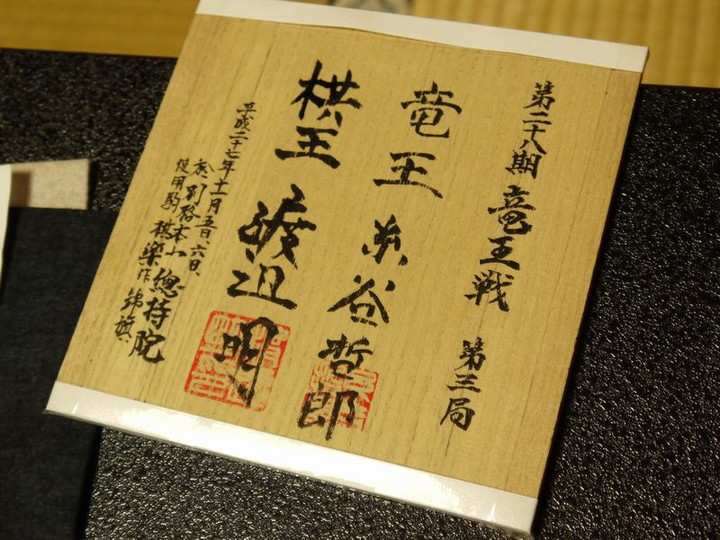 第二十八期 竜王戦 第三局
竜王 糸谷哲郎
棋王 渡辺明
平成二十七年十一月五日、六日、
於 別格本山 總持院
使用駒 棋楽作 錦旗